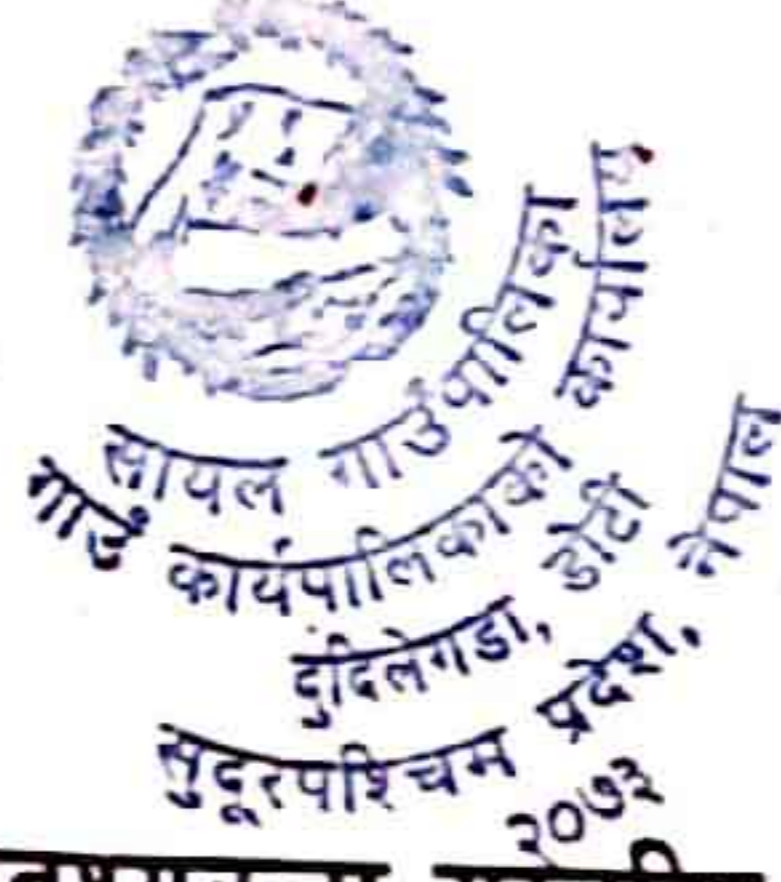 सायल गाउँपालिका
गाउँ कार्यपालिकाको कार्यालय
दुदिलेगडा, डोटी
सुदूरपश्चिम प्रदेश, नेपाल
२०७३